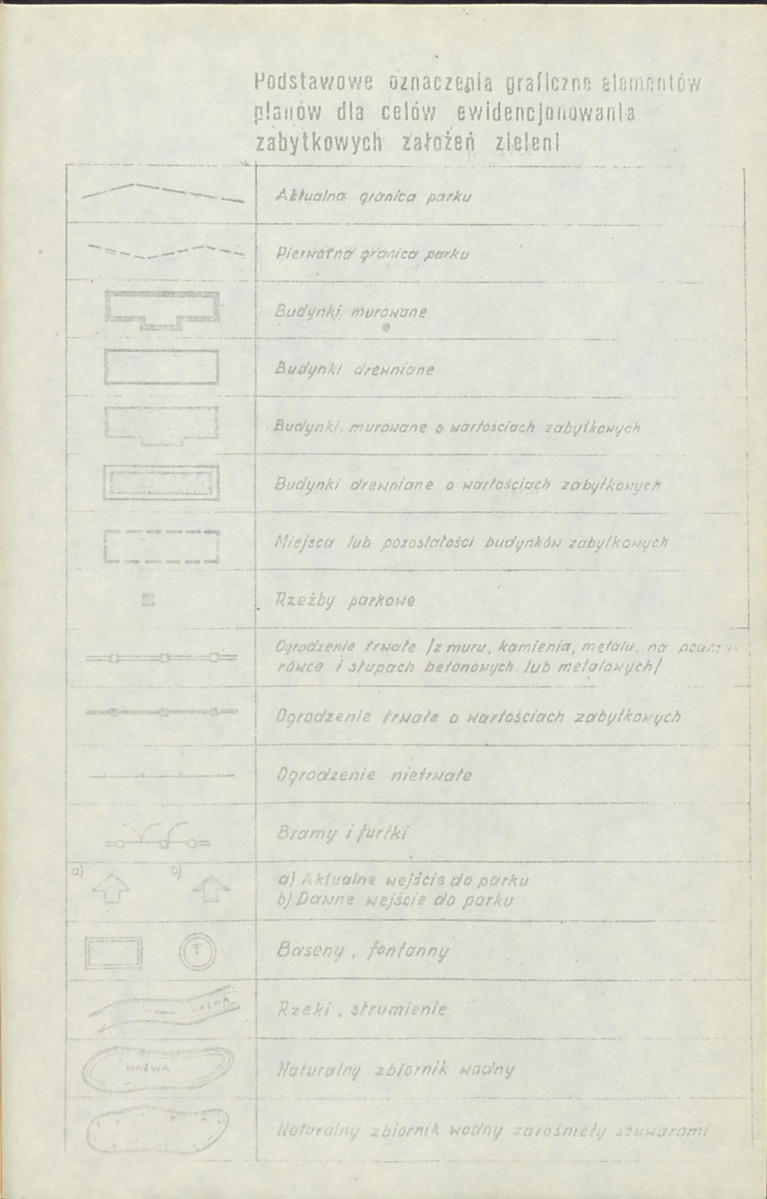 Podstawowe oznaczenia graficzne elementów
planów dla celów ewidencjonowania
zabytkowych założeń zieleni
Aktualna granica parku
Pierwotna granica parku
Budynki murowane
Budynki drewniane
Budynki murowane o wartościach zabytkowych
Budynki drewniane o wartościach zabytkowych
Miejsca lub pozostałości budynków zabytkowych
Rzeźby parkowe
Ogrodzenie trwałe /z muru, kamienia, metalu, na podmu-
rówce i słupach betonowych lub metalowych/
Ogrodzenie trwałe o wartościach zabytkowych
Ogrodzenie nietrwałe
Bramy i furtki
a) b)
a) Aktualne wejście do parku
b) Dawne wejście do parku
Baseny, fontanny
Rzeki, strumienie
NAZWA
Naturalny zbiornik wodny
Naturalny zbiornik wodny zarośnięty szuwarami